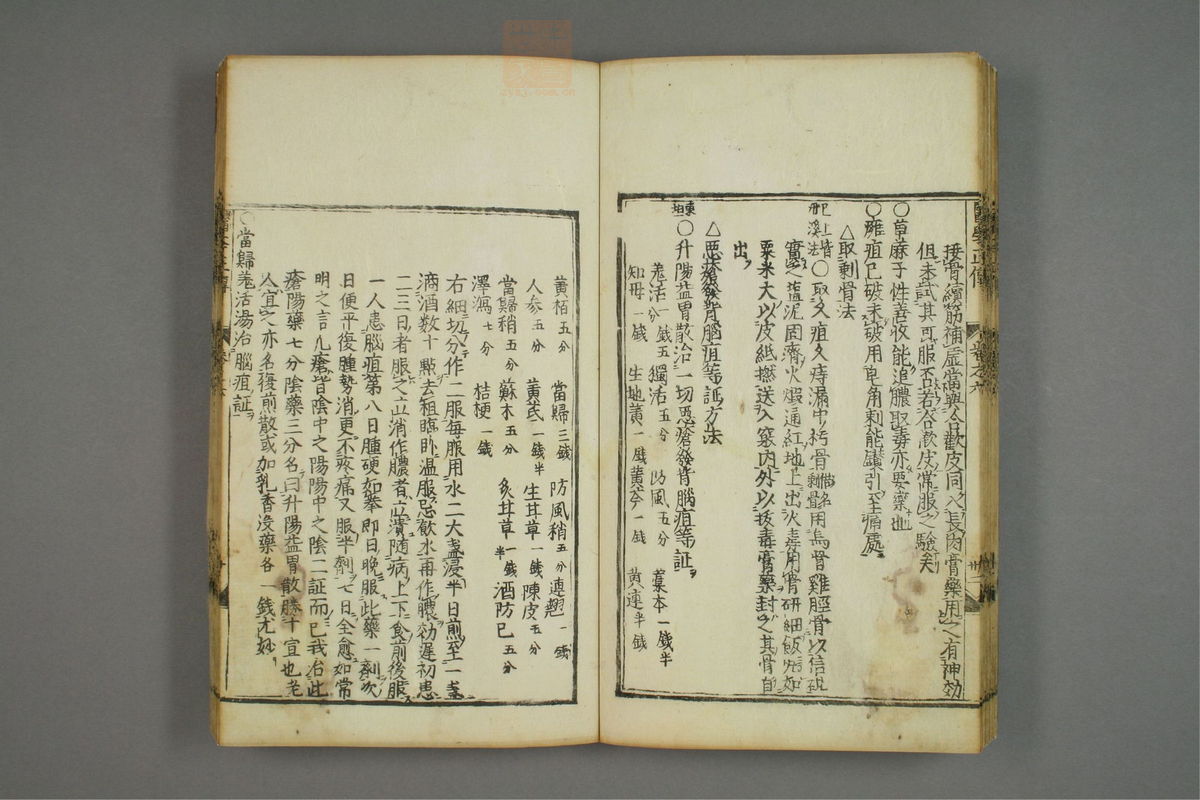 接骨續筋補虛當與合歡皮同入長肉膏藥用之有神効
但未試其可服否若合歡皮常服之驗矣
○萆麻子性善收能追膿取毒亦要藥也
○癰疽已破未破用皂角刺能鑽引至痛處
△取剩骨法
已上皆丹溪法○取久疽久痔漏中朽骨一名剩骨用烏骨雞脛骨以信砒
實之鹽泥固濟火煆通紅地上出火毒用骨研細飯丸如
粟米大以皮紙撚送入竅內外以拔毒膏藥封之其骨自
出
△惡瘡發背腦疽等証方法
東垣○升陽益胃散治一切惡瘡發背腦疽等証
羗活一錢五 獨活五分 防風五分 藁本一錢半
知母一錢 生地黃一錢 黃芩一錢 黃連半錢
黃栢五分 當歸三錢 防風稍五分 連翹一錢
人參五分 黃茋一錢半 生甘草一錢 陳皮五分
當歸稍五分 蘇木五分 炙甘草一錢半 酒防巳五分
澤瀉七分 桔梗一錢
右細切分作二服每服用水二大盞浸半日煎至一盞
滴酒數十點去粗臨卧温服忌飲水再作膿効遲初患
二三日者服之立消作膿者立潰随病上下食前後服
一人患腦疽第八日腫硬如拳即日晚服此藥一劑次
日便平復腫勢消更不疼痛又服半劑七日全愈如常
明之言凢瘡皆陰中之陽陽中之陰二証而已我治此
瘡陽藥七分陰藥三分名曰升陽益胃散勝十宣也老
人宜之亦名復煎散或加乳香沒藥各一錢尤妙
○當歸羗活湯治腦疽証
醫學正傳
卷之六